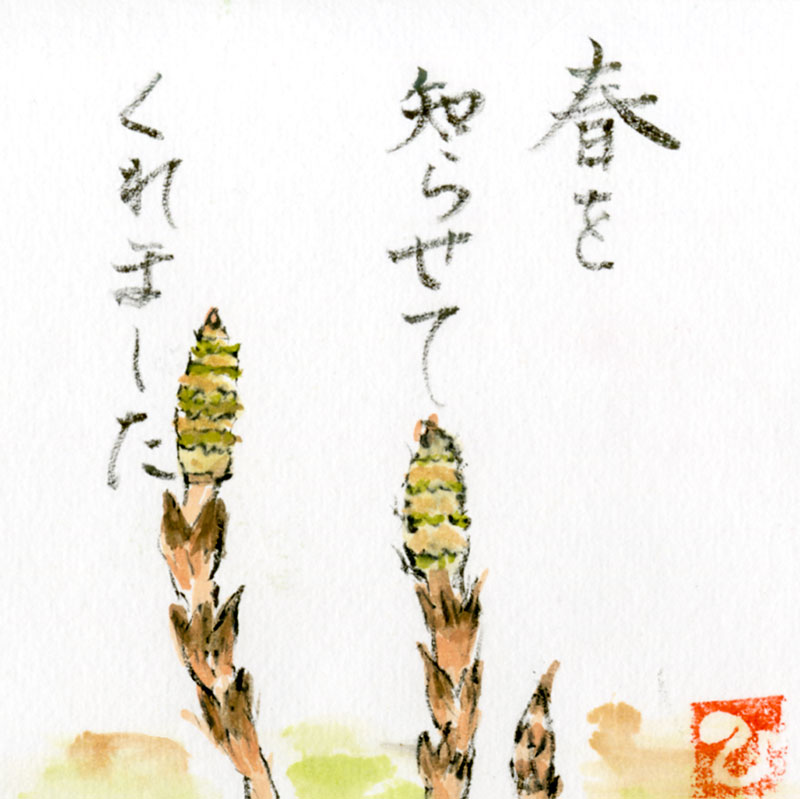 春を
知らせて
くれました
ひ